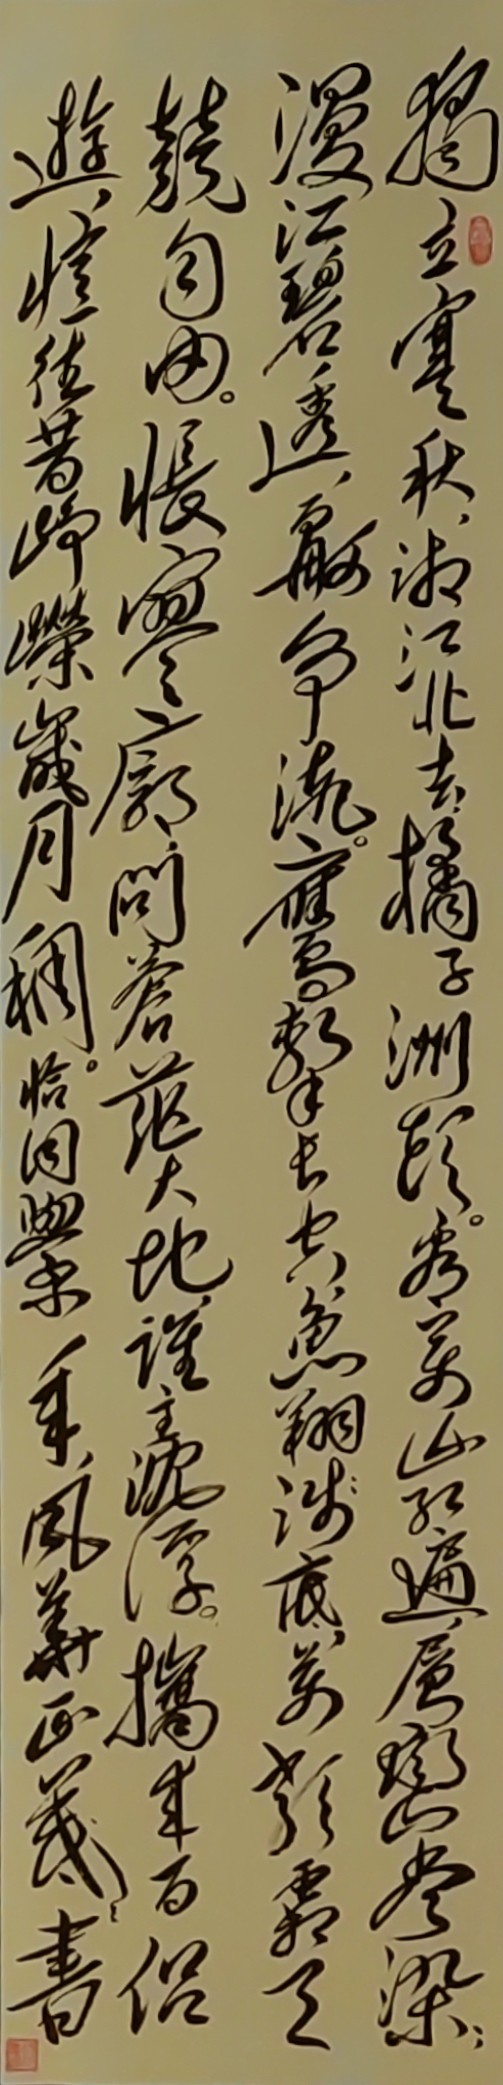 獨立寒秋、湘江北去、橘子洲頭。看萬山紅遍、層巒尽染；
漫江碧透、百舸争流。鷹擊長空、魚翔淺底、萬類霜天
競自由。悵寥廓、問蒼茫大地誰主沉浮。攜來百侣
遊、憶往昔崢嶸歲月稠。恰同學少年、風華正茂；書